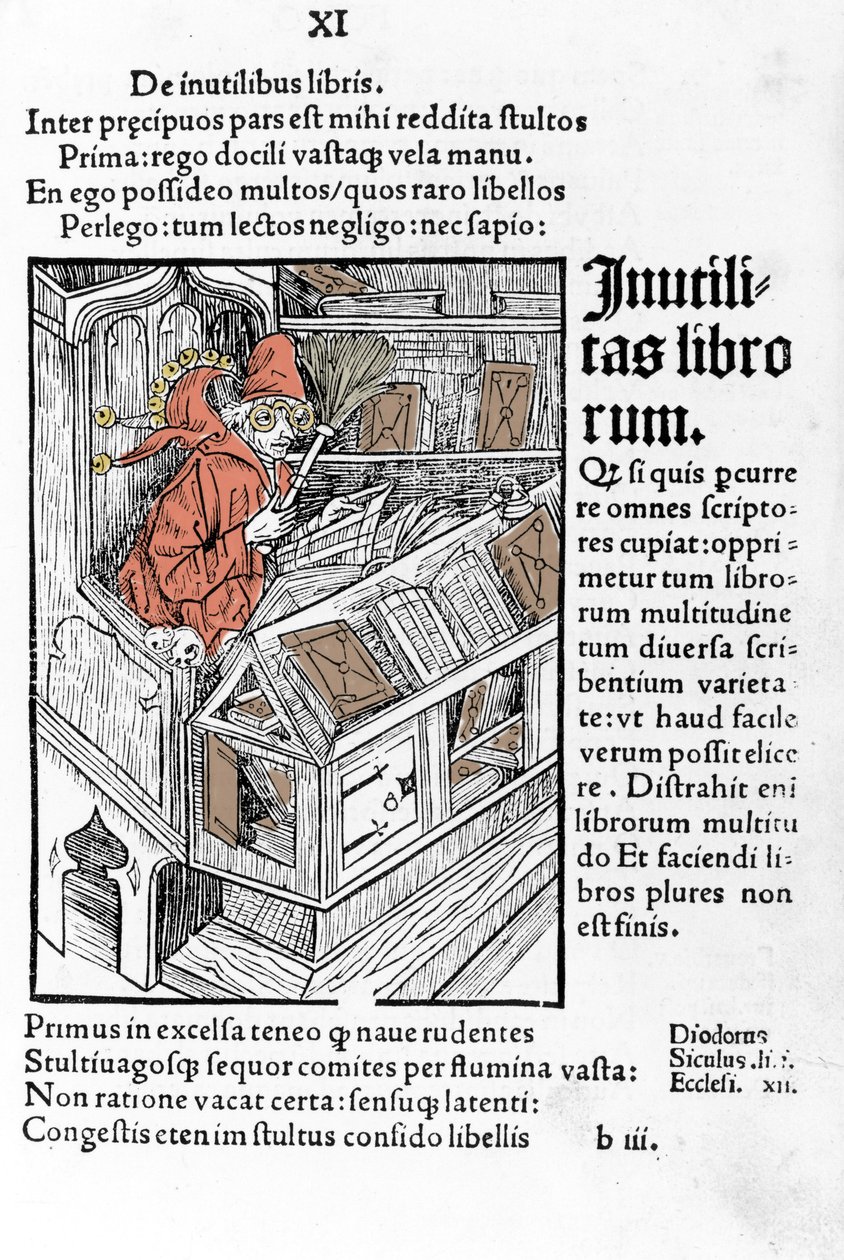 XI
De inutilibus libris.
Inter pręcipuos pars eſt mihi reddita ſtultos
Prima:rego docili vaſtaqꝫ vela manu.
En ego poſſideo multos/quos raro libellos
Perlego:tum lectos negligo:nec ſapio:
Inutili⸗
tas libro
rum.
Qꝫ ſi quis ꝑcurre
re omnes ſcripto⸗
res cupiat:oppri⸗
metur tum libro⸗
rum multitudine
tum diuerſa ſcri⸗
bentium varieta
te:vt haud facile
verum poſſit elice
re. Diſtrahit eni
librorum multitu
do Et faciendi li⸗
bros plures non
eſt finis.
Primus in excelſa teneo ꝙ naue rudentes
Stultiuagoſqꝫ ſequor comites per flumina vaſta:
Non ratione vacat certa:ſenſuqꝫ latenti:
Congeſtis etenim ſtultus confido libellis
Diodorus
Siculus .li. i.
Eccleſi. xii.
b iii.